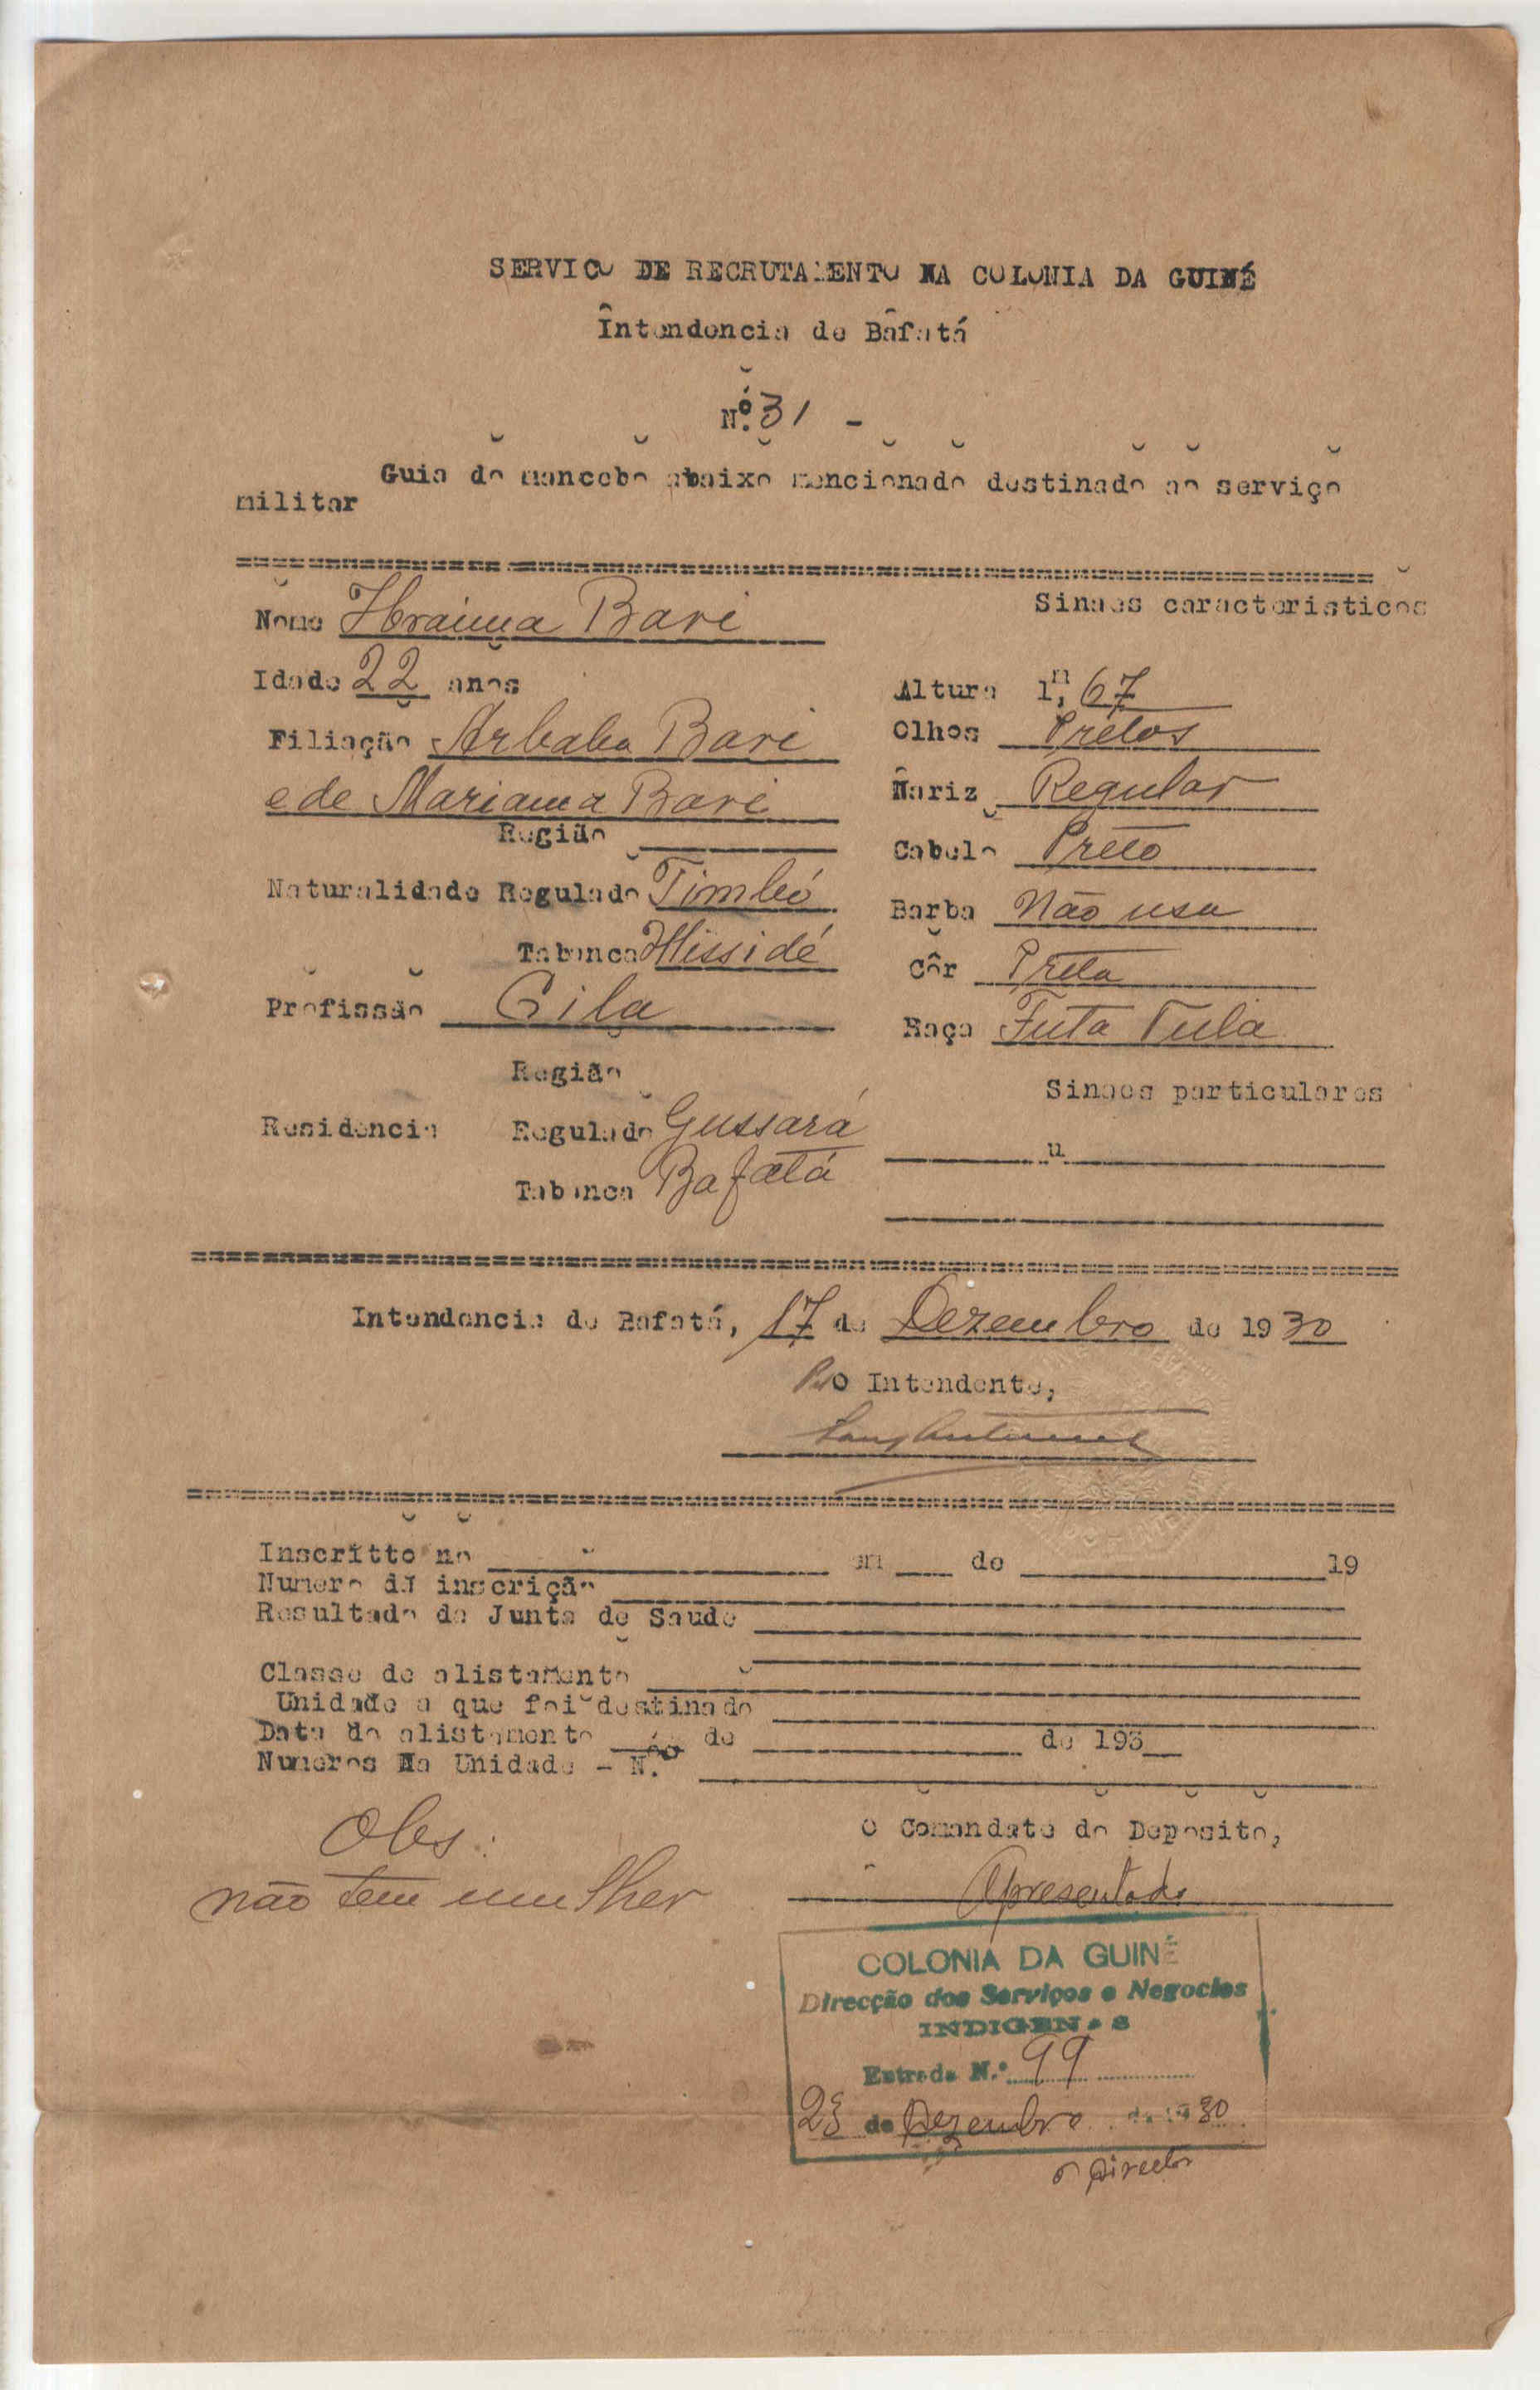 SERVICO DE RECRUTAMENTO NA COLONIA DA GUINÉ
Intendencia de Bafatá
N.º 31 -
Guia do mancebo abaixo mencionado destinado ao serviço
militar
Sinaes caracteristicos
Nome Ibraima Bari
Idade 22 anos
Altura 1m, 67
Filiação Arbaba Bari
Olhos Prétos
e de Mariama Bari
Nariz Regular
Região
Cabelo Prêto
Naturalidade Regulado Timbó
Barba Não usa
Tabanca Missidé
Côr Preta
Profissão Gila
Raça Futa Fula
Região
Sinaes particulares
Residencia Regulado Gussará
"
Tabanca Bafatá
Intendencia de Bafatá, 17 de Dezembro de 1930
Pelo Intendente,
Inscritto no em de 19
Numero da inscrição
Resultado da Junta de Saude
Classe de alistamento
Unidade a que foi destinado
Data do alistamento de de 193
Numeros na Unidade - N.º
Obs:
O Comandate do Deposito,
não tem mulher
Apresentado
COLONIA DA GUINÉ
Direcção dos Serviços e Negocios
INDIGENAS
Entrada N.º 99
23 de Dezembro de 1930
o Director